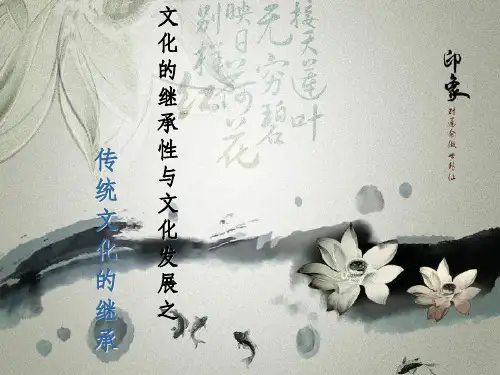 印象
接天莲叶
无穷碧
映日荷花
别样红
文化的继承性与文化发展之
传统文化的继承